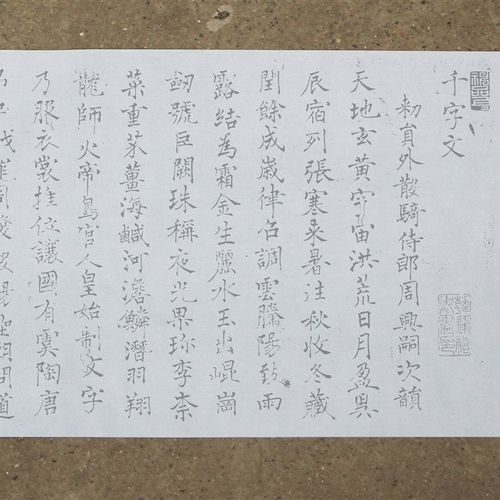 千字文
勑員外散騎侍郎周興嗣次韻
天地玄黃宇宙洪荒日月盈昃
辰宿列張寒來暑往秋收冬藏
閏餘成歲律召調雲騰陽致雨
露結為霜金生麗水玉出崐崗
劒號巨闕珠稱夜光果珍李柰
菜重芥薑海鹹河淡鱗潛羽翔
龍師火帝鳥官人皇始制文字
乃服衣裳推位讓國有虞陶唐
弔民伐罪周發殷湯坐朝問道